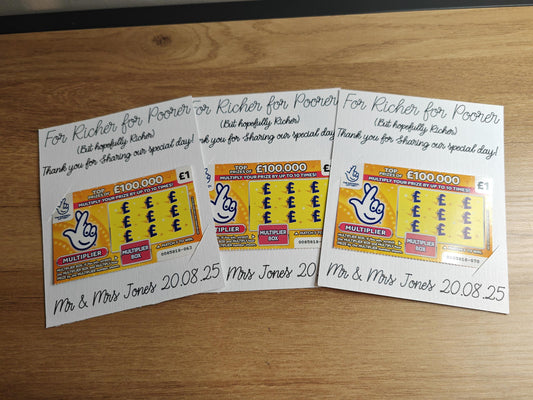 For Richer for Poorer
(But hopefully Richer)
Thank you for Sharing our special day!
TOP PRIZES OF £100,000
£1
MULTIPLY YOUR PRIZE BY UP TO 10 TIMES!
£ £ £
£ £ £
£ £ £
MULTIPLIER
MULTIPLIER BOX
Mr & Mrs Jones 20.08.25
For Richer for Poorer
(But hopefully Richer)
Thank you for Sharing our special day
TOP PRIZES OF £100,000
MULTIPLY YOUR PRIZE BY UP TO 10 TIMES!
£ £ £
£ £ £
£ £ £
MULTIPLIER BOX
Mrs Jones 20.08
For Richer for Poorer
(But hopefully Richer)
Thank you for Sharing our special day!
TOP PRIZES OF £100,000
£1
MULTIPLY YOUR PRIZE BY UP TO 10 TIMES!
£ £ £
£ £ £
£ £ £
MULTIPLIER
MULTIPLIER BOX
Mr & Mrs Jones 20.08.25